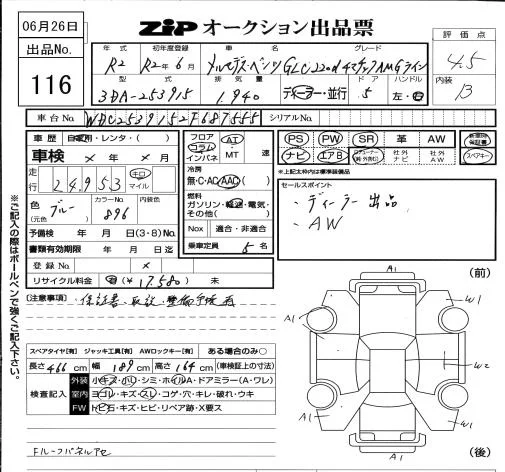 06月26日
ZIP オークション出品票
出品No.
116
年式 初年度登録 車名 グレード
R2 R2年6月 メルセデス・ベンツ GLC220d 4マチック AMGライン
型式 排気量 ドア ハンドル
3DA-253915 1,940 ディーラー・並行 5 左・右
評価点
4.5
内装
B
車台No. WDC2539152F687555 シリアルNo.
車歴 自家用・レンタ・( )
車検 × 年 × 月
走行 24,953 キロ マイル
色 (元色) ブルー カラーNo. 896 内装色
予備検 年 月 日(3・8)No.
書類有効期限 年 月 日迄
登録No. ×
リサイクル料金 済 (¥17,580) 未
フロア コラム インパネ AT MT 速
冷房 無・C・AC・AAC( )
燃料 ガソリン・軽油・電気・その他( )
Nox 適合・非適合
乗車定員 5名
PS PW SR 革 AW 新車時保証書
ナビ エアB 社外ナビ 社外AW スペアキー
*上記太枠内は標準装備品
セールスポイント
・ディーラー出品
・AW
注意事項: 保証書・取説・整備手帳有
スペアタイヤ[有] ジャッキ工具[有] AWロックキー[有] ある場合のみ○
長さ 466 cm 幅 189 cm 高さ 164 cm (車検証上の寸法)
検査記入
外装 小キズ・小凹・シミ・ホイルA・ドアミラー(A・ワレ)
室内 ヨゴレ・キズ・スレ・コゲ・穴・キレ・破れ・ウキ
FW トビ石・キズ・ヒビ・リペア跡・X要ス
Fルーフパネルアセ
※ご記入の際はボールペンで強くご記入下さい。
A1 (前)
W1
A1
W2
A1
W1
A1 (後)